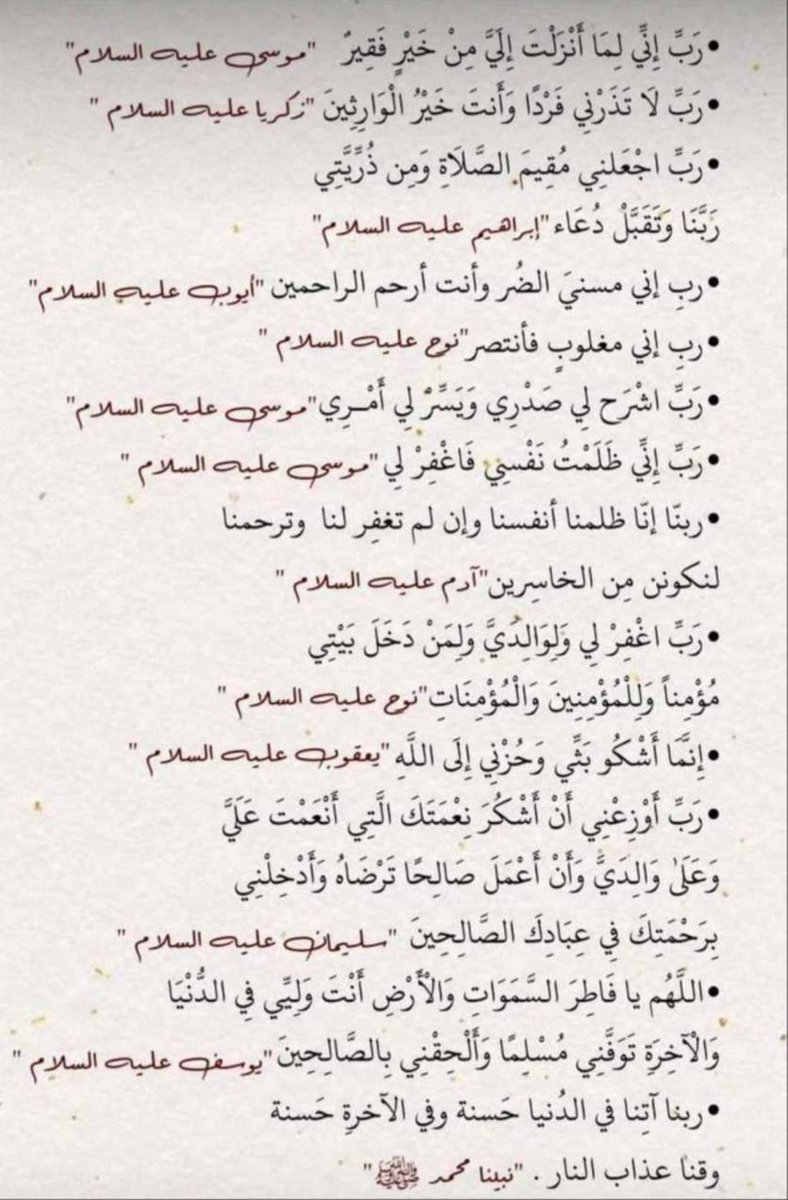 •رَبِّ إِنِّي لِمَا أَنْزَلْتَ إِلَيَّ مِنْ خَيْرٍ فَقِيرٌ "موسى عليه السلام"
•رَبِّ لَا تَذَرْنِي فَرْدًا وَأَنتَ خَيْرُ الْوَارِثِينَ "زكريا عليه السلام "
•رَبِّ اجْعَلنِي مُقِيمَ الصَّلَاةِ وَمِن ذُرِّيَّتِي
رَبَّنَا وَتَقَبَّلْ دُعَاء "إبراهيم عليه السلام"
•ربِ إني مسنيَ الضُر وأنت أرحم الراحمين "أيوب عليه السلام"
•ربِ إني مغلوبٍ فأنتصر "نوح عليه السلام "
•رَبِّ اشْرَح لِي صَدْرِي وَيَسِّرْ لِي أَمْـرِي "موسى عليه السلام"
•رَبِّ إِنِّي ظَلَمْتُ نَفْسِي فَاغْفِرْ لِي "موسى عليه السلام "
•ربنّا إنّا ظلمنا أنفسنا وإن لم تغفِر لنا وترحمنا
لنكونن مِن الخاسِرين "آدم عليه السلام "
•رَبِّ اغْفِرْ لِي وَلِوَالِدَيَّ وَلِمَنْ دَخَلَ بَيْتِي
مُؤْمِناً وَلِلْمُؤْمِنِينَ وَالْمُؤْمِنَاتِ "نوح عليه السلام "
•إِنَّمَا أَشْكُو بَثِّي وَحُزْنِي إِلَى اللَّهِ "يعقوب عليه السلام "
•رَبِّ أَوْزِعْنِي أَنْ أَشْكُرَ نِعْمَتَكَ الَّتِي أَنْعَمْتَ عَلَيَّ
وَعَلَىٰ وَالِدَيَّ وَأَنْ أَعْمَلَ صَالِحًا تَرْضَاهُ وَأَدْخِلْنِي
بِرَحْمَتِكَ فِي عِبَادِكَ الصَّالِحِينَ "سليمان عليه السلام "
•اللَّهُم يا فَاطِرَ السَّمَوَاتِ وَالْأَرْضِ أَنْتَ وَلِيِّي فِي الدُّنْيَا
وَالْآخِرَةِ تَوَفَّنِي مُسْلِمًا وَأَلْحِقْنِي بِالصَّالِحِينَ "يوسف عليه السلام "
•ربنا آتِنا في الدُنيا حَسنة وفي الآخرةِ حَسنة
وقنا عذاب النار . "نبينا محمد ﷺ"